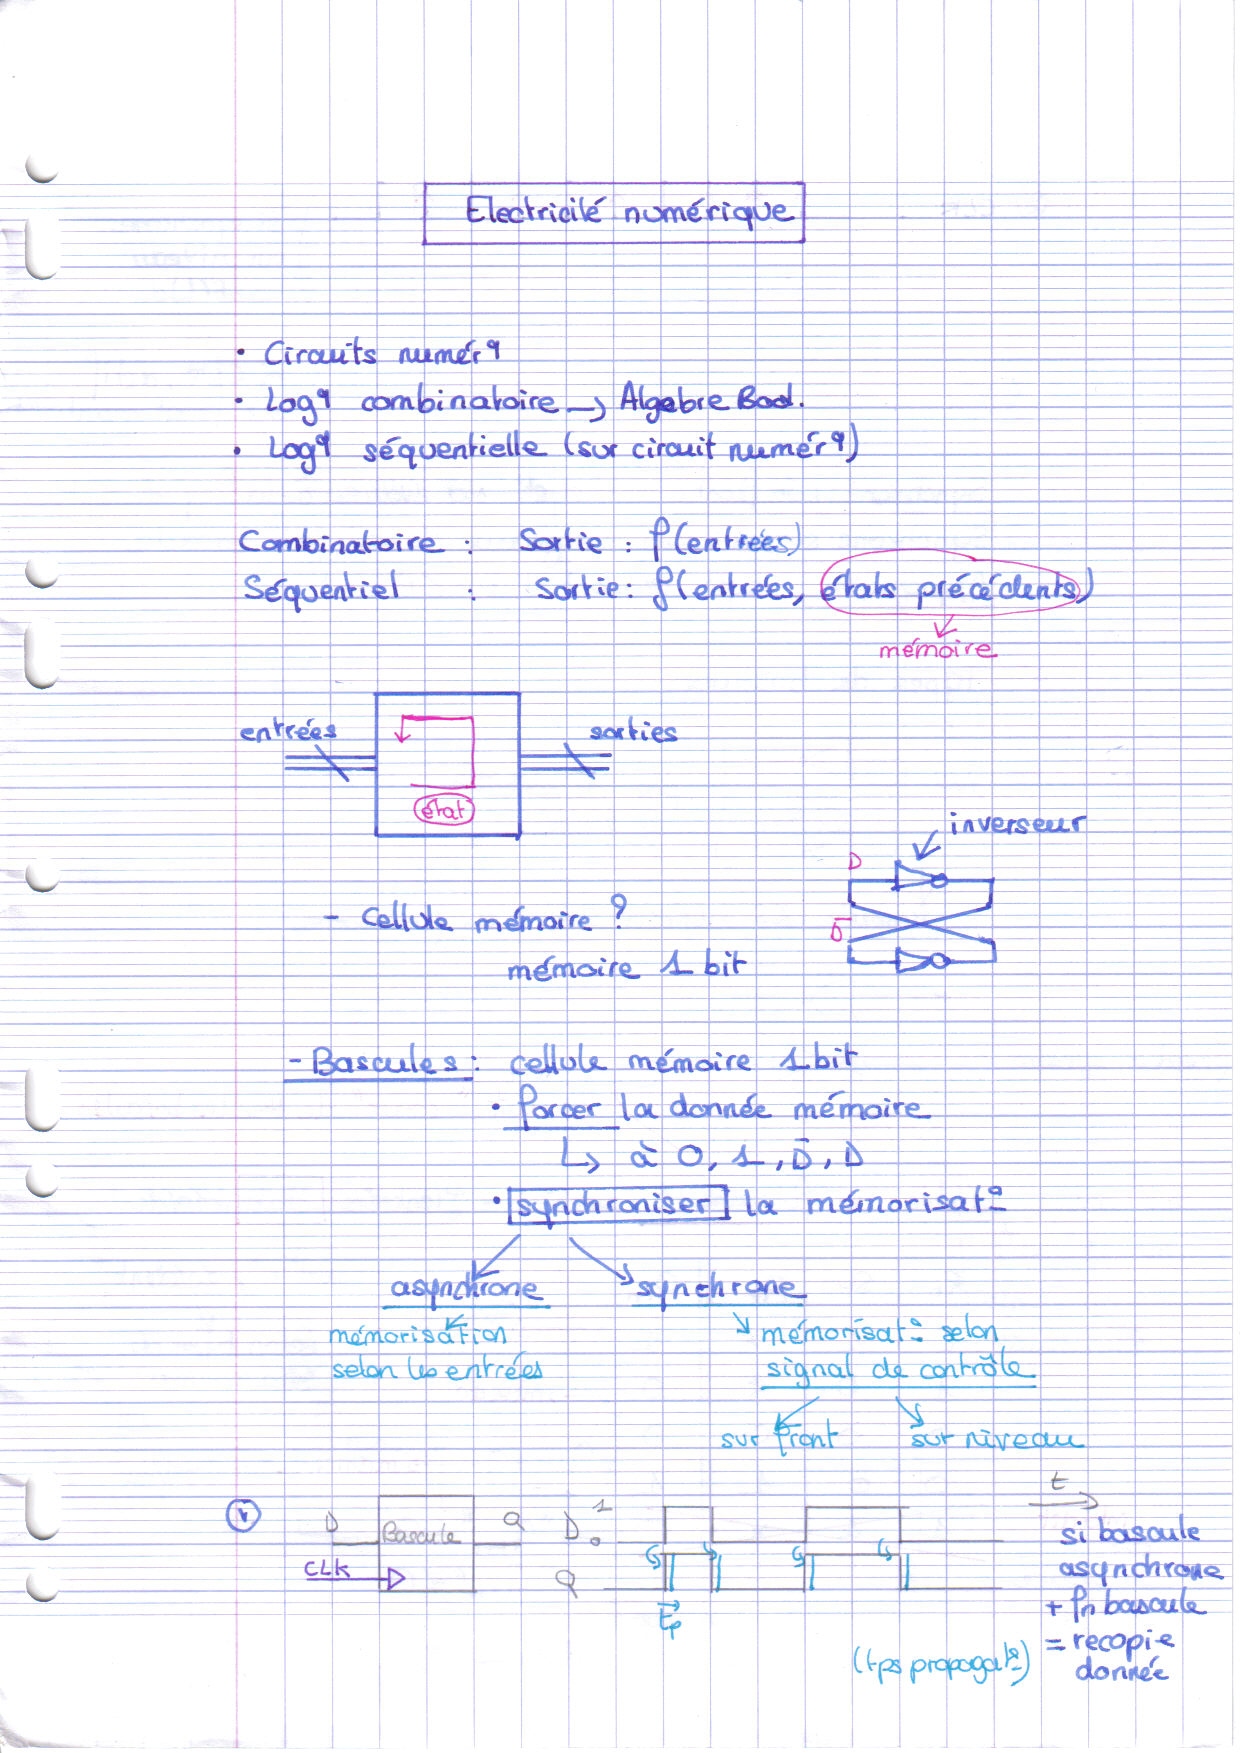 Electricité numérique
• Circuits numérq
• Logq combinatoire → Algèbre Bool.
• Logq séquentielle (sur circuit numérq)
Combinatoire : Sortie : f(entrées)
Séquentiel : Sortie : f(entrées, états précédents)
mémoire
entrées
sorties
état
inverseur
D
- Cellule mémoire ?
D̅
mémoire 1 bit
- Bascules : cellule mémoire 1 bit
• forcer la donnée mémoire
↳ à 0, 1, D̅, D
• synchroniser la mémorisat°
asynchrone synchrone
mémorisation
selon les entrées
mémorisat° selon
signal de contrôle
sur front sur niveau
t
D Bascule Q D 1 0
CLK
Q
tp
(tps propagat°)
si bascule
asynchrone
+ fn bascule
= recopie
donnée